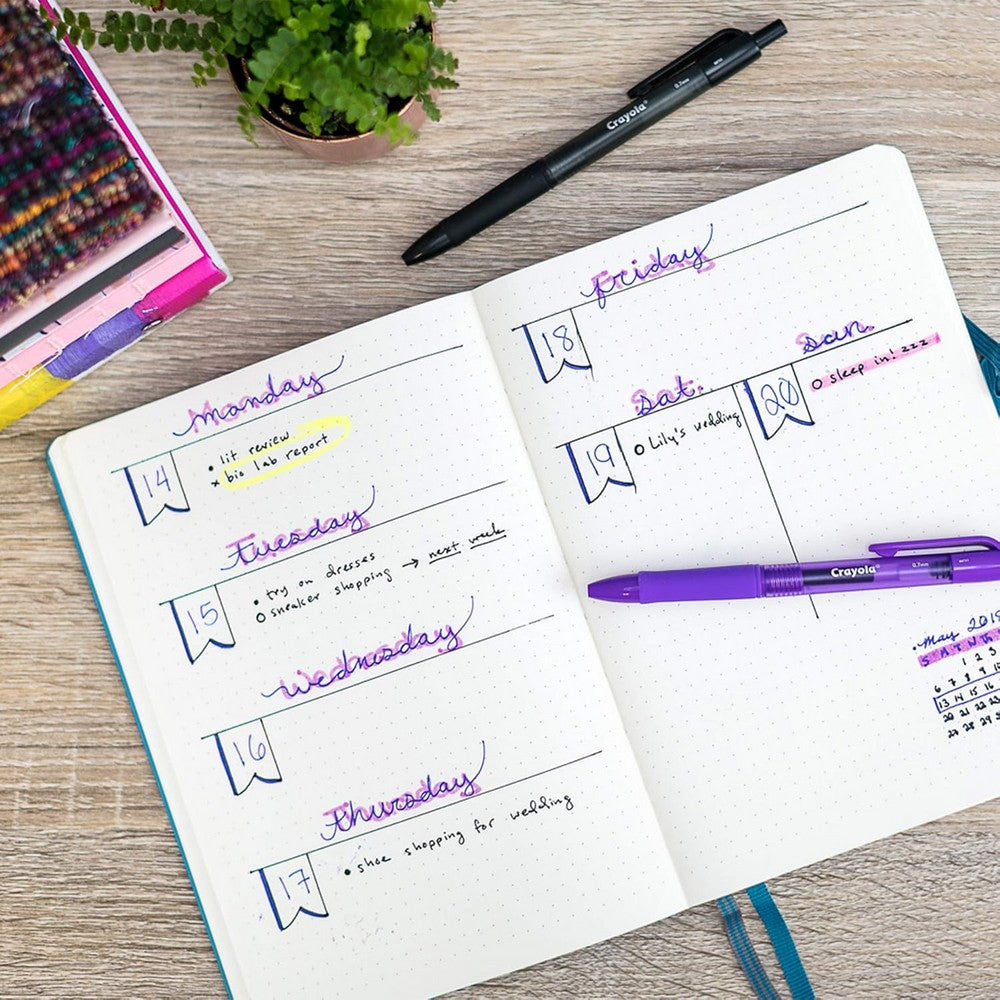 Monday
14
• lit review
x bio lab report
Tuesday
15
• try on dresses
o sneaker shopping → next week
Wednesday
16
Thursday
17
• shoe shopping for wedding
Friday
18
Sat.
19
o Lily's wedding
Sun.
20
o sleep in! zzz
• May 2018
S M T W Th
1 2 3
6 7 8 9 10
13 14 15 16
20 21 22 23
27 28 29
Crayola 0.7mm
Crayola 0.7mm